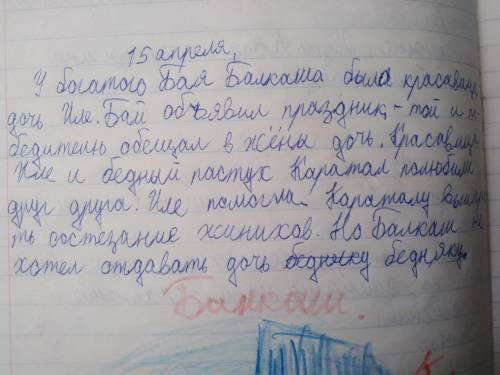 15 апреля.
У богатого Бая Балкаша была красавица
дочь Иле. Бай объявил праздник, - той и по-
бедителю обещал в жёны дочь. Красавица
Иле и бедный пастух Каратал полюбили
друг друга. Иле помогла Караталу выигра
ть состезание жинихов. Но Балкаш не
хотел отдавать дочь бедняку бедняку.
Балкаш.
К